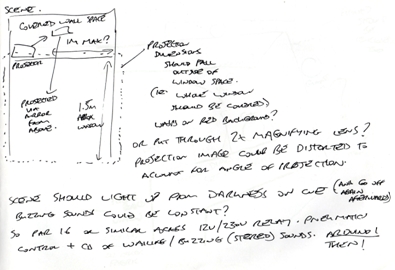 SCENE.
COVERED WALL SPACE
1M MAX?
PROJECTOR
PROJECTED
VIA
MIRROR
FROM
ABOVE.
1.5M
APPROX
WINDOW
PROJECTION
DIMENSIONS
SHOULD FALL
OUTSIDE OF
WINDOW SPACE.
(IE: WHOLE WINDOW
SHOULD BE COVERED)
ON RED BACKGROUND?
OR PUT THROUGH 2X MAGNIFYING LENS?
PROJECTION IMAGE COULD BE DISTORTED TO
ACCOUNT FOR ANGLE OF PROJECTION.
SCENE SHOULD LIGHT UP FROM DARKNESS ON CUE (AND GO OFF
AGAIN
AFTERWARDS)
BUZZING SOUNDS COULD BE CONSTANT?
SO PAR 16 OR SIMILAR ACROSS 12V/230V RELAY. PNEUMATIC
CONTROL + CD OF WAILING/BUZZING (STEREO) SOUNDS. AROUND 1
THEN!